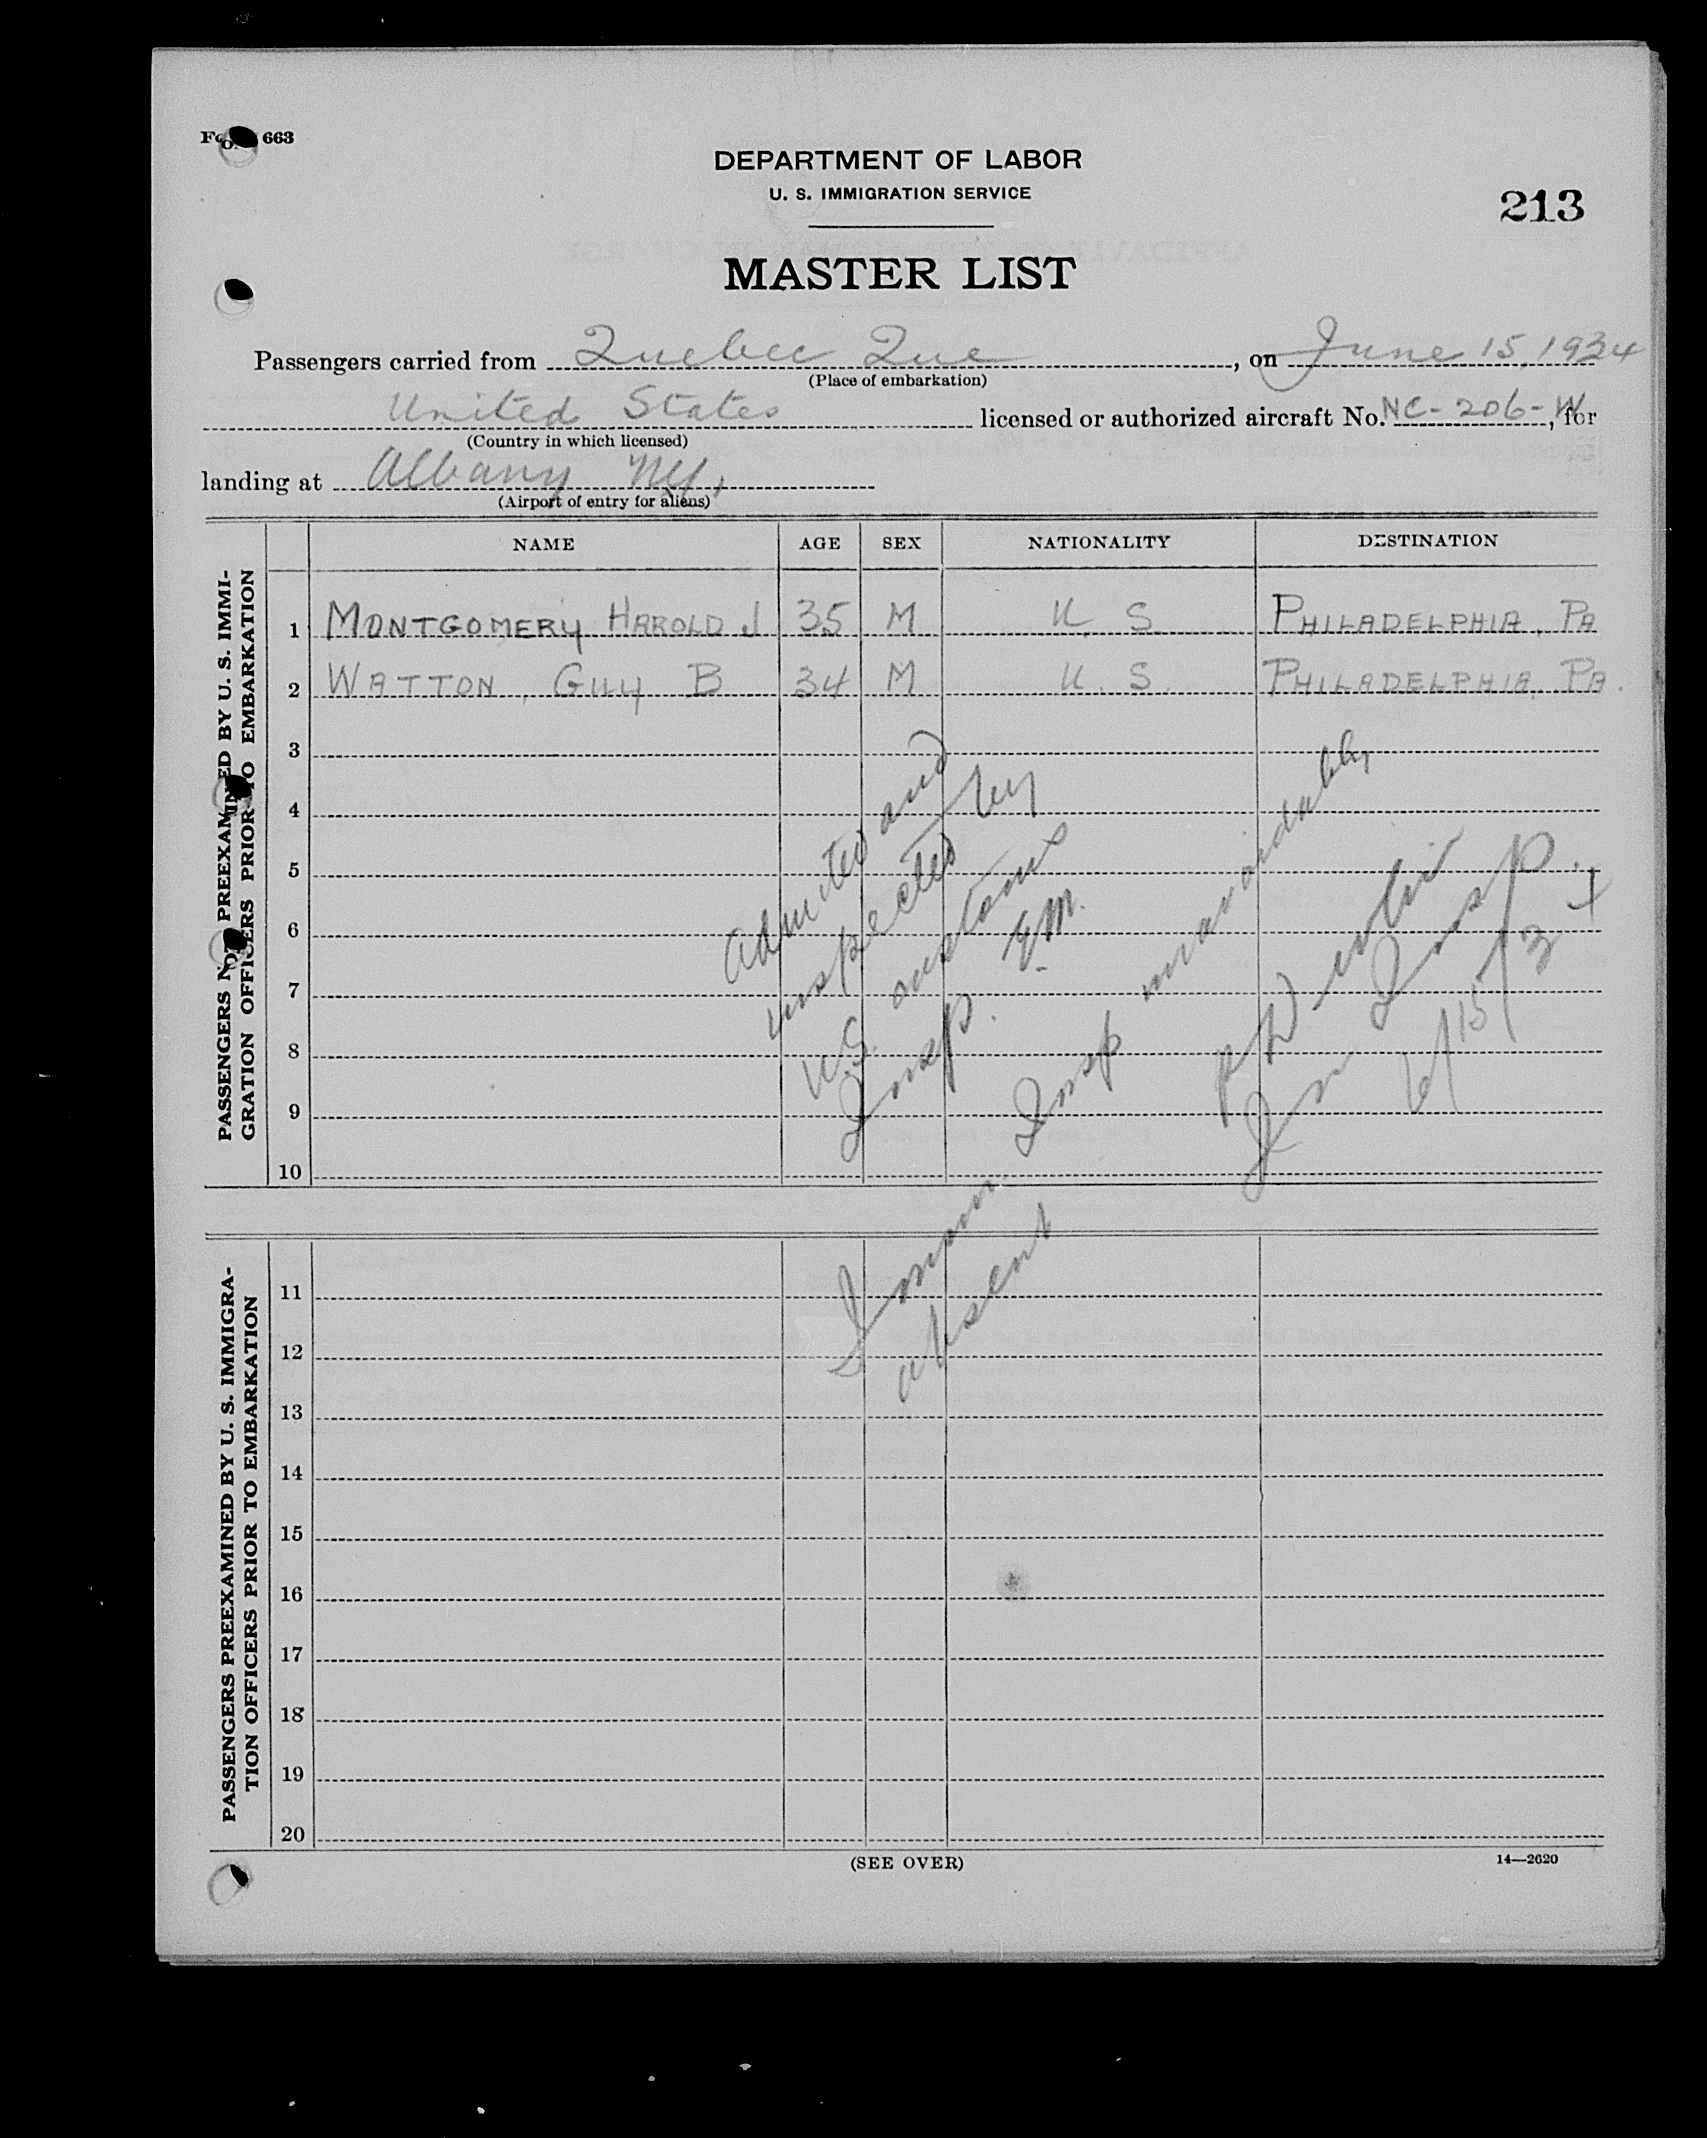 Form 663
DEPARTMENT OF LABOR
U. S. IMMIGRATION SERVICE
213
MASTER LIST
Passengers carried from Quebec Que, on June 15, 1934
(Place of embarkation)
United States licensed or authorized aircraft No. NC-206-W, for
(Country in which licensed)
landing at Albany NY,
(Airport of entry for aliens)
NAME AGE SEX NATIONALITY DESTINATION
PASSENGERS NOT PREEXAMINED BY U. S. IMMI-
GRATION OFFICERS PRIOR TO EMBARKATION
1 MONTGOMERY HAROLD J 35 M U. S. PHILADELPHIA, PA
2 WATTON, GUY B 34 M U. S. PHILADELPHIA, PA.
3
4
5
6
7
8
9
10
Admitted and
inspected by
U.S. customs
Insp. E.M.
Immgr. Insp unavoidably
absent
Im Insp.
6/15/34
PASSENGERS PREEXAMINED BY U. S. IMMIGRA-
TION OFFICERS PRIOR TO EMBARKATION
11
12
13
14
15
16
17
18
19
20
(SEE OVER)
14—2620